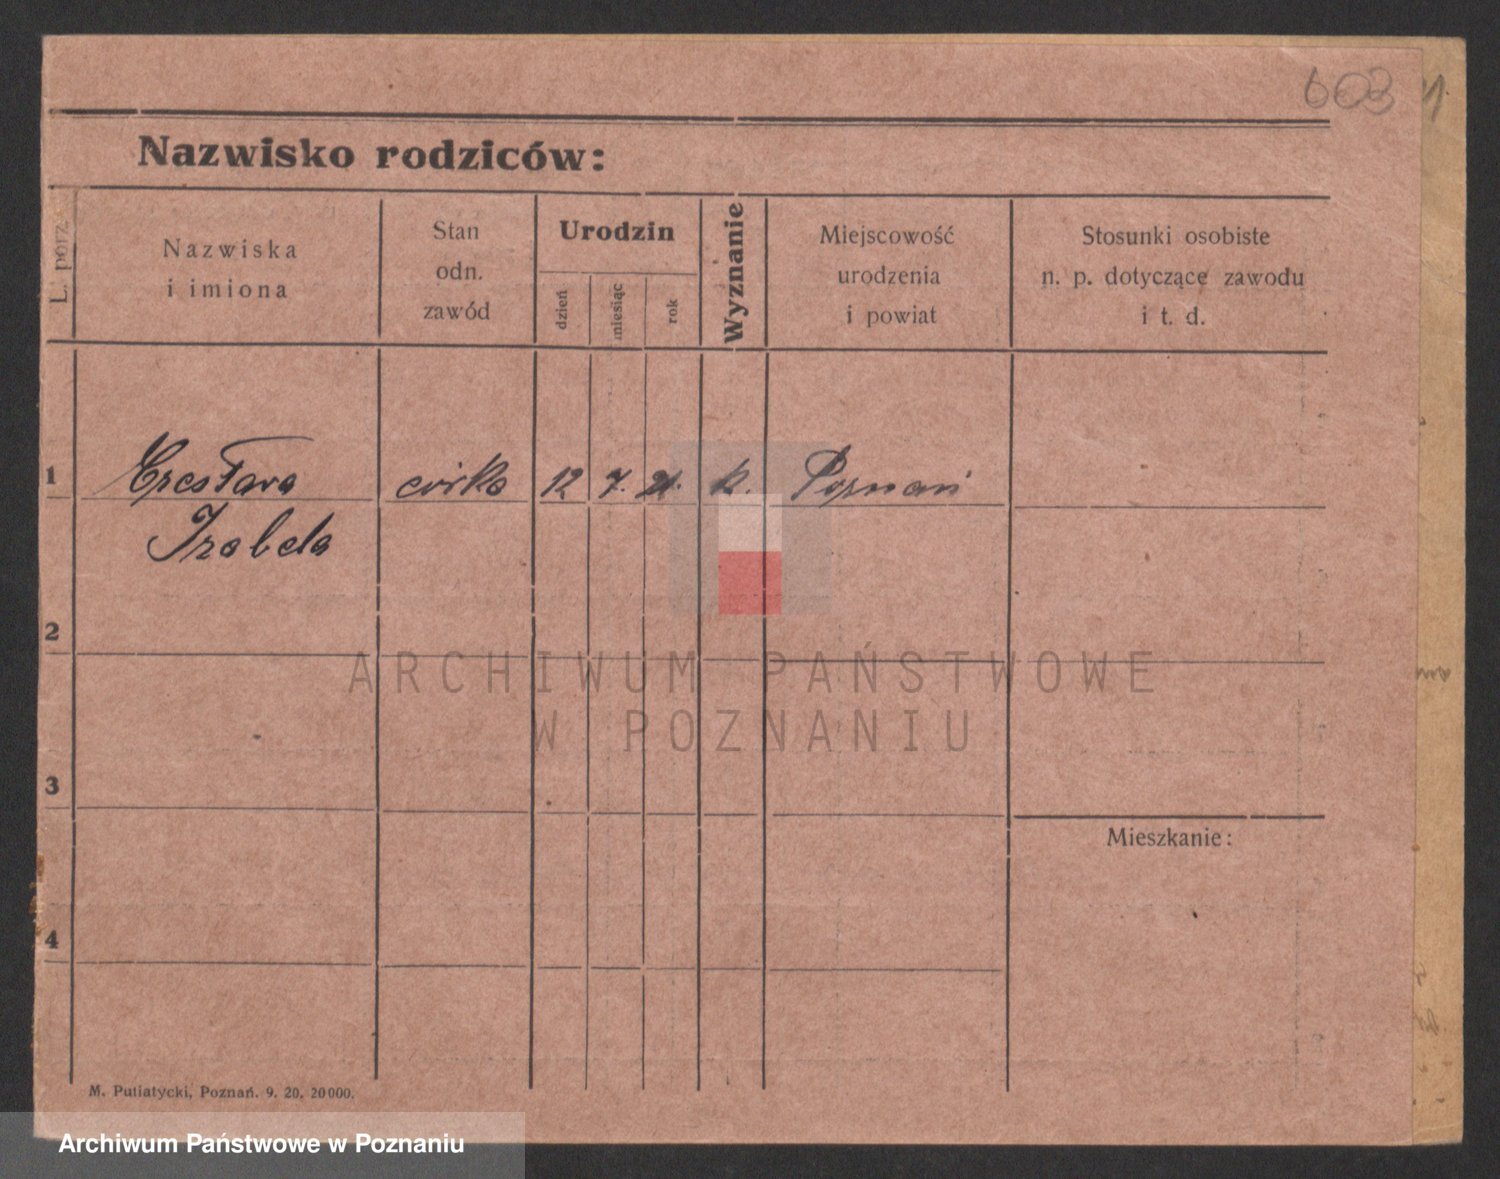 603
Nazwisko rodziców:
L. porz.
Nazwiska
i imiona
Stan
odn.
zawód
Urodzin
dzień
miesiąc
rok
Wyznanie
Miejscowość
urodzenia
i powiat
Stosunki osobiste
n. p. dotyczące zawodu
i t. d.
1 Czesława córka 12 7. 21. k. Poznań
Izabela
2
3
Mieszkanie:
4
M. Putiatycki, Poznań. 9. 20. 20000.
ARCHIWUM PAŃSTWOWE
W POZNANIU
Archiwum Państwowe w Poznaniu